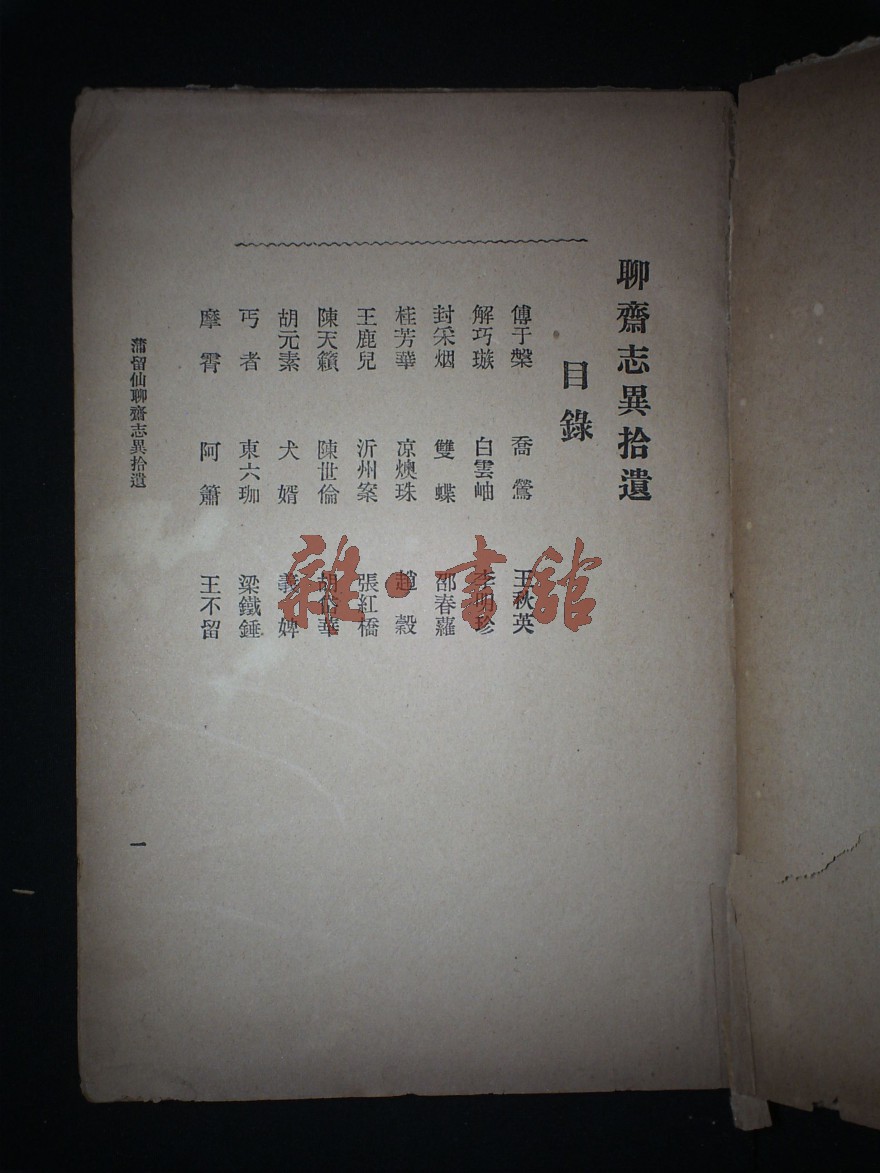 聊齋志異拾遺
目錄
傅于槃 喬鶯 王秋英
解巧璈 白雲岫 李明珍
封采烟 雙蝶 邵春蘿
桂芳華 凉燠珠 趙穀
王鹿兒 沂州案 張紅橋
陳天籟 陳世倫 胡岱華
胡元素 犬婿 義婢
丐者 東六珈 梁鐵錘
摩霄 阿簫 王不留
蒲留仙聊齋志異拾遺
一
雜·書館